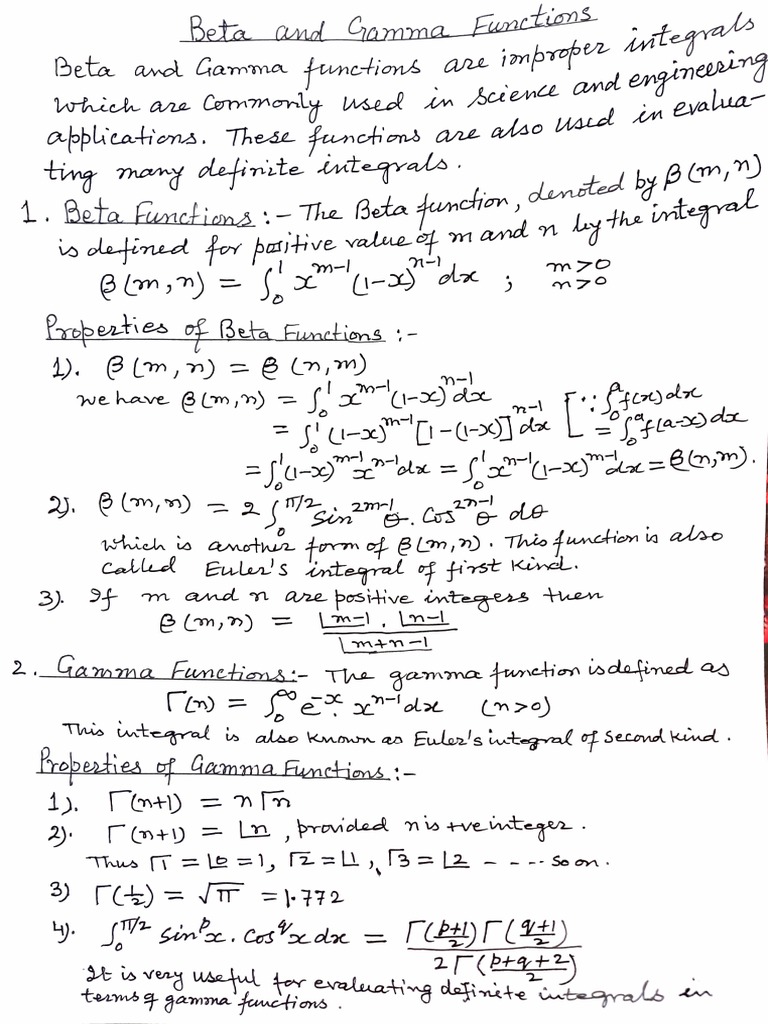 Beta and Gamma Functions
Beta and Gamma functions are improper integrals
which are commonly used in science and engineering
applications. These functions are also used in evalua-
ting many definite integrals.
1. Beta Functions :- The Beta function, denoted by β(m,n)
is defined for positive value of m and n by the integral
β(m,n) = ∫₀¹ x^(m-1) (1-x)^(n-1) dx ; m>0
n>0
Properties of Beta Functions :-
1). β(m,n) = β(n,m)
we have β(m,n) = ∫₀¹ x^(m-1) (1-x)^(n-1) dx
= ∫₀¹ (1-x)^(m-1) [1-(1-x)]^(n-1) dx [∵ ∫₀^a f(x) dx
= ∫₀^a f(a-x) dx
= ∫₀¹ (1-x)^(m-1) x^(n-1) dx = ∫₀¹ x^(n-1) (1-x)^(m-1) dx = β(n,m).
2). β(m,n) = 2 ∫₀^(π/2) sin^(2m-1) θ . cos^(2n-1) θ dθ
which is another form of β(m,n). This function is also
called Euler's integral of first kind.
3). If m and n are positive integers then
β(m,n) = (|m-1 . |n-1) / |m+n-1
2. Gamma Functions :- The gamma function is defined as
Γ(n) = ∫₀^∞ e^(-x) . x^(n-1) dx (n>0)
This integral is also known as Euler's integral of second kind.
Properties of Gamma Functions :-
1). Γ(n+1) = n Γn
2). Γ(n+1) = |n , provided n is +ve integer.
Thus Γ1 = |0 = 1, Γ2 = |1, Γ3 = |2 - - - - so on.
3) Γ(1/2) = √π = 1.772
4). ∫₀^(π/2) sin^p x . cos^q x dx = Γ((p+1)/2) Γ((q+1)/2) / 2 Γ((p+q+2)/2)
It is very useful for evaluating definite integrals in
terms of gamma functions.